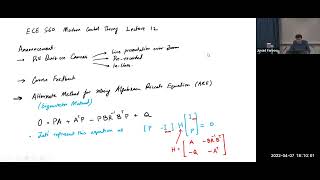 ECE 560 Modern Control Theory Lecture 12
Announcement:
→ Pill Box on Canvas → Live presentation over Zoom
→ Pre-recorded
→ In-class
→ Course Feedback
→ Alternate Method for solving Algebraic Riccati Equation (ARE)
(Eigenvector Method)
0 = PA + AᵀP - PBR⁻¹BᵀP + Q
- Let's represent this equation as [P -I] H [I
P] = 0
H = [A -BR⁻¹Bᵀ
-Q -Aᵀ]
2022-04-07 18:10:01